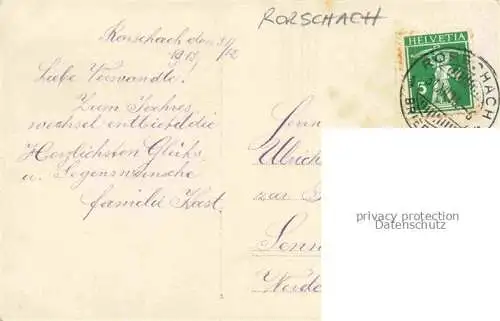 RORSCHACH
Rorschach den 31/12
1915
Liebe Verwandte.
Zum Jahres
wechsel entbietet die
Herzlichsten Glücks
u. Segenswünsche
familie Kast.
HELVETIA
5
RORSCHACH
Ulrich
zur
Senn
privacy protection
Datenschutz